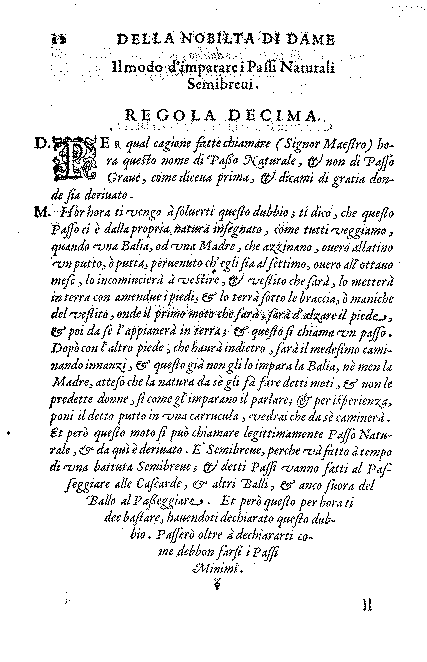 12 DELLA NOBILTA DI DAME
Il modo d'imparare i Paſſi Naturali
Semibreui.
REGOLA DECIMA.
D. PER qual cagione fatte chiamare (Signor Maeſtro) ho-
ra queſto nome di Paſſo Naturale, & non di Paſſo
Graue, come diceua prima, & dicami di gratia don-
de ſia deriuato.
M. Hor hora ti vengo à ſoluerti queſto dubbio; ti dico, che queſto
Paſſo ci è dalla propria natura inſegnato, come tutti veggiamo,
quando vna Balia, od vna Madre, che azzinano, ouero allatino
vn putto, ò putta, peruenuto ch'egli ſia al ſettimo, ouero all'ottauo
meſe, lo incomincierà à veſtire, & veſtito che ſarà, lo metterà
in terra con amendue i piedi, & lo terrà ſotto le braccia, ò maniche
del veſtito, onde il primo moto che farà, ſarà d'alzare il piede,
& poi da ſe l'appianerà in terra; & queſto ſi chiama vn paſſo.
Dopò con l'altro piede, che haurà indietro, farà il medeſimo cami-
nando innanzi, & queſto già non gli lo impara la Balia, nè men la
Madre, atteſo che la natura da sè gli fà fare detti moti, & non le
predette donne, ſi come gl'imparano il parlare, & per iſperienza,
poni il detto putto in vna carrucula, vedrai che da sè caminerà.
Et però queſto moto ſi può chiamare legittimamente Paſſo Natu-
rale, & da quì è deriuato. E' Semibreue, perche và fatto à tempo
di vna battuta Semibreue; & detti Paſſi vanno fatti al Paſ-
ſeggiare alle Caſcarde, & altri Balli, & anco fuora del
Ballo al Paſſeggiare. Et però queſto per hora ti
dee baſtare, hauendoti dechiarato queſto dub-
bio. Paſſerò oltre à dechiararti co-
me debbon farſi i Paſſi
Minimi.
Il